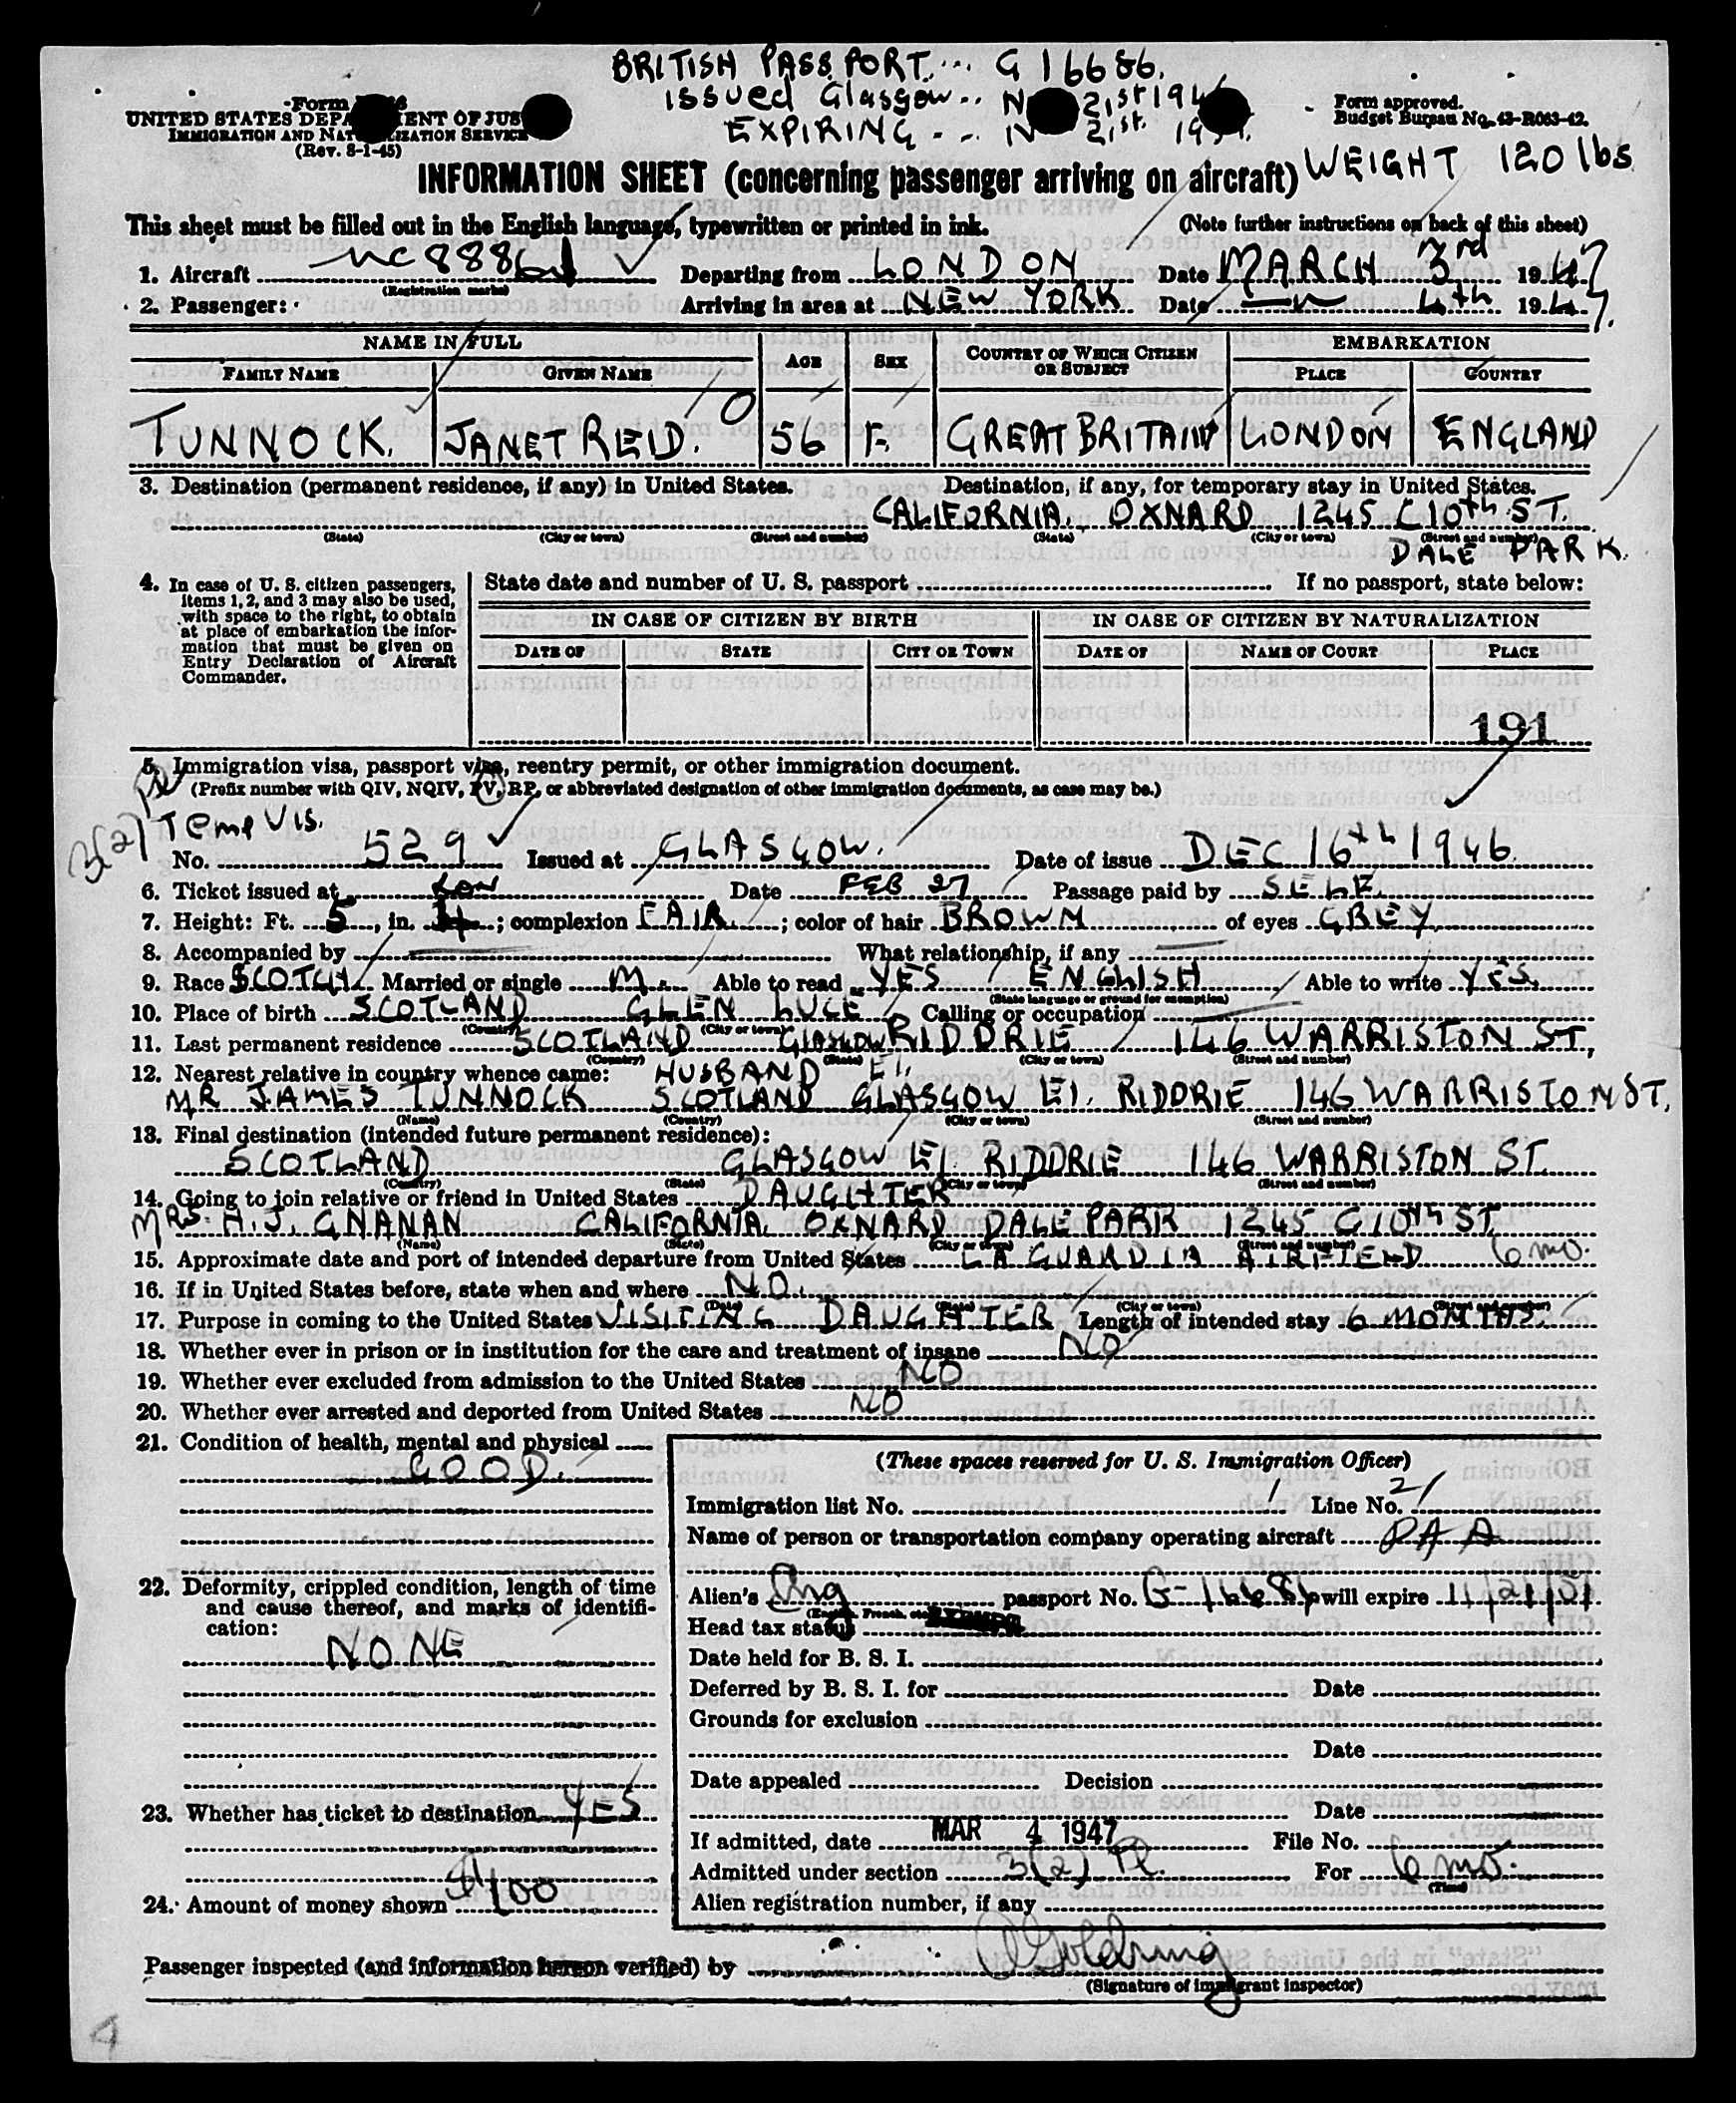 BRITISH PASSPORT... G 16686.
Issued Glasgow.. 21st 194
EXPIRING... 21st. 19
Form
UNITED STATES DEPARTMENT OF JUS
IMMIGRATION AND NATURALIZATION SERVICE
(Rev. 8-1-45)
Form approved.
Budget Bureau No. 43-R063-42.
WEIGHT 120 lbs
INFORMATION SHEET (concerning passenger arriving on aircraft)
This sheet must be filled out in the English language, typewritten or printed in ink. (Note further instructions on back of this sheet)
1. Aircraft NC 888 Departing from LONDON Date MARCH 3rd 1947
(Registration marks)
2. Passenger: Arriving in area at NEW YORK Date 4th 1947.
NAME IN FULL AGE SEX COUNTRY OF WHICH CITIZEN OR SUBJECT EMBARKATION
FAMILY NAME GIVEN NAME PLACE COUNTRY
TUNNOCK. JANET REID. 56 F. GREAT BRITAIN LONDON ENGLAND
3. Destination (permanent residence, if any) in United States. Destination, if any, for temporary stay in United States.
CALIFORNIA. OXNARD 1245 C 10th ST.
(State) (City or town) (Street and number) (State) (City or town) (Street and number)
DALE PARK.
4. In case of U. S. citizen passengers, items 1, 2, and 3 may also be used, with space to the right, to obtain at place of embarkation the information that must be given on Entry Declaration of Aircraft Commander.
State date and number of U. S. passport If no passport, state below:
IN CASE OF CITIZEN BY BIRTH IN CASE OF CITIZEN BY NATURALIZATION
DATE OF STATE CITY OR TOWN DATE OF NAME OF COURT PLACE
191
5. Immigration visa, passport visa, reentry permit, or other immigration document.
(Prefix number with QIV, NQIV, PV, RP, or abbreviated designation of other immigration documents, as case may be.)
3(2) Temp Vis.
No. 529 Issued at GLASGOW. Date of issue DEC 16th 1946
6. Ticket issued at Lon Date FEB 27 Passage paid by SELF.
7. Height: Ft. 5, in. 4; complexion FAIR; color of hair BROWN of eyes GREY
8. Accompanied by What relationship, if any
9. Race SCOTCH Married or single M. Able to read YES ENGLISH Able to write YES.
(State language or ground for exemption)
10. Place of birth SCOTLAND GLEN LUCE Calling or occupation
(Country) (City or town)
11. Last permanent residence SCOTLAND GLASGOW RIDDRIE 146 WARRISTON ST,
(Country) (State) (City or town) (Street and number)
12. Nearest relative in country whence came: HUSBAND E1.
MR JAMES TUNNOCK SCOTLAND GLASGOW E1. RIDDRIE 146 WARRISTON ST.
(Name) (Country) (City or town) (Street and number)
13. Final destination (intended future permanent residence):
SCOTLAND GLASGOW E1 RIDDRIE 146 WARRISTON ST.
(Country) (State) (City or town) (Street and number)
14. Going to join relative or friend in United States DAUGHTER
MRS. H. J. GNANAN CALIFORNIA OXNARD DALE PARK 1245 C 10th ST.
(Name) (State) (City or town) (Street and number)
15. Approximate date and port of intended departure from United States LA GUARDIA AIRFIELD 6 mo.
16. If in United States before, state when and where NO.
(Date) (State) (City or town) (Street and number)
17. Purpose in coming to the United States VISITING DAUGHTER Length of intended stay 6 MONTHS.
18. Whether ever in prison or in institution for the care and treatment of insane NO
19. Whether ever excluded from admission to the United States NO
20. Whether ever arrested and deported from United States NO
21. Condition of health, mental and physical
GOOD.
22. Deformity, crippled condition, length of time and cause thereof, and marks of identification:
NONE
23. Whether has ticket to destination YES
24. Amount of money shown $100
(These spaces reserved for U. S. Immigration Officer)
Immigration list No. 1 Line No. 21
Name of person or transportation company operating aircraft PAA
Alien's Eng passport No. G-16686 will expire 11/21/51
(English, French, etc.)
Head tax status
Date held for B. S. I.
Deferred by B. S. I. for Date
Grounds for exclusion
Date
Date appealed Decision
Date
If admitted, date MAR 4 1947 File No.
Admitted under section 3(2) For 6 mo.
(Time)
Alien registration number, if any
Passenger inspected (and information hereon verified) by Goldring
(Signature of immigrant inspector)